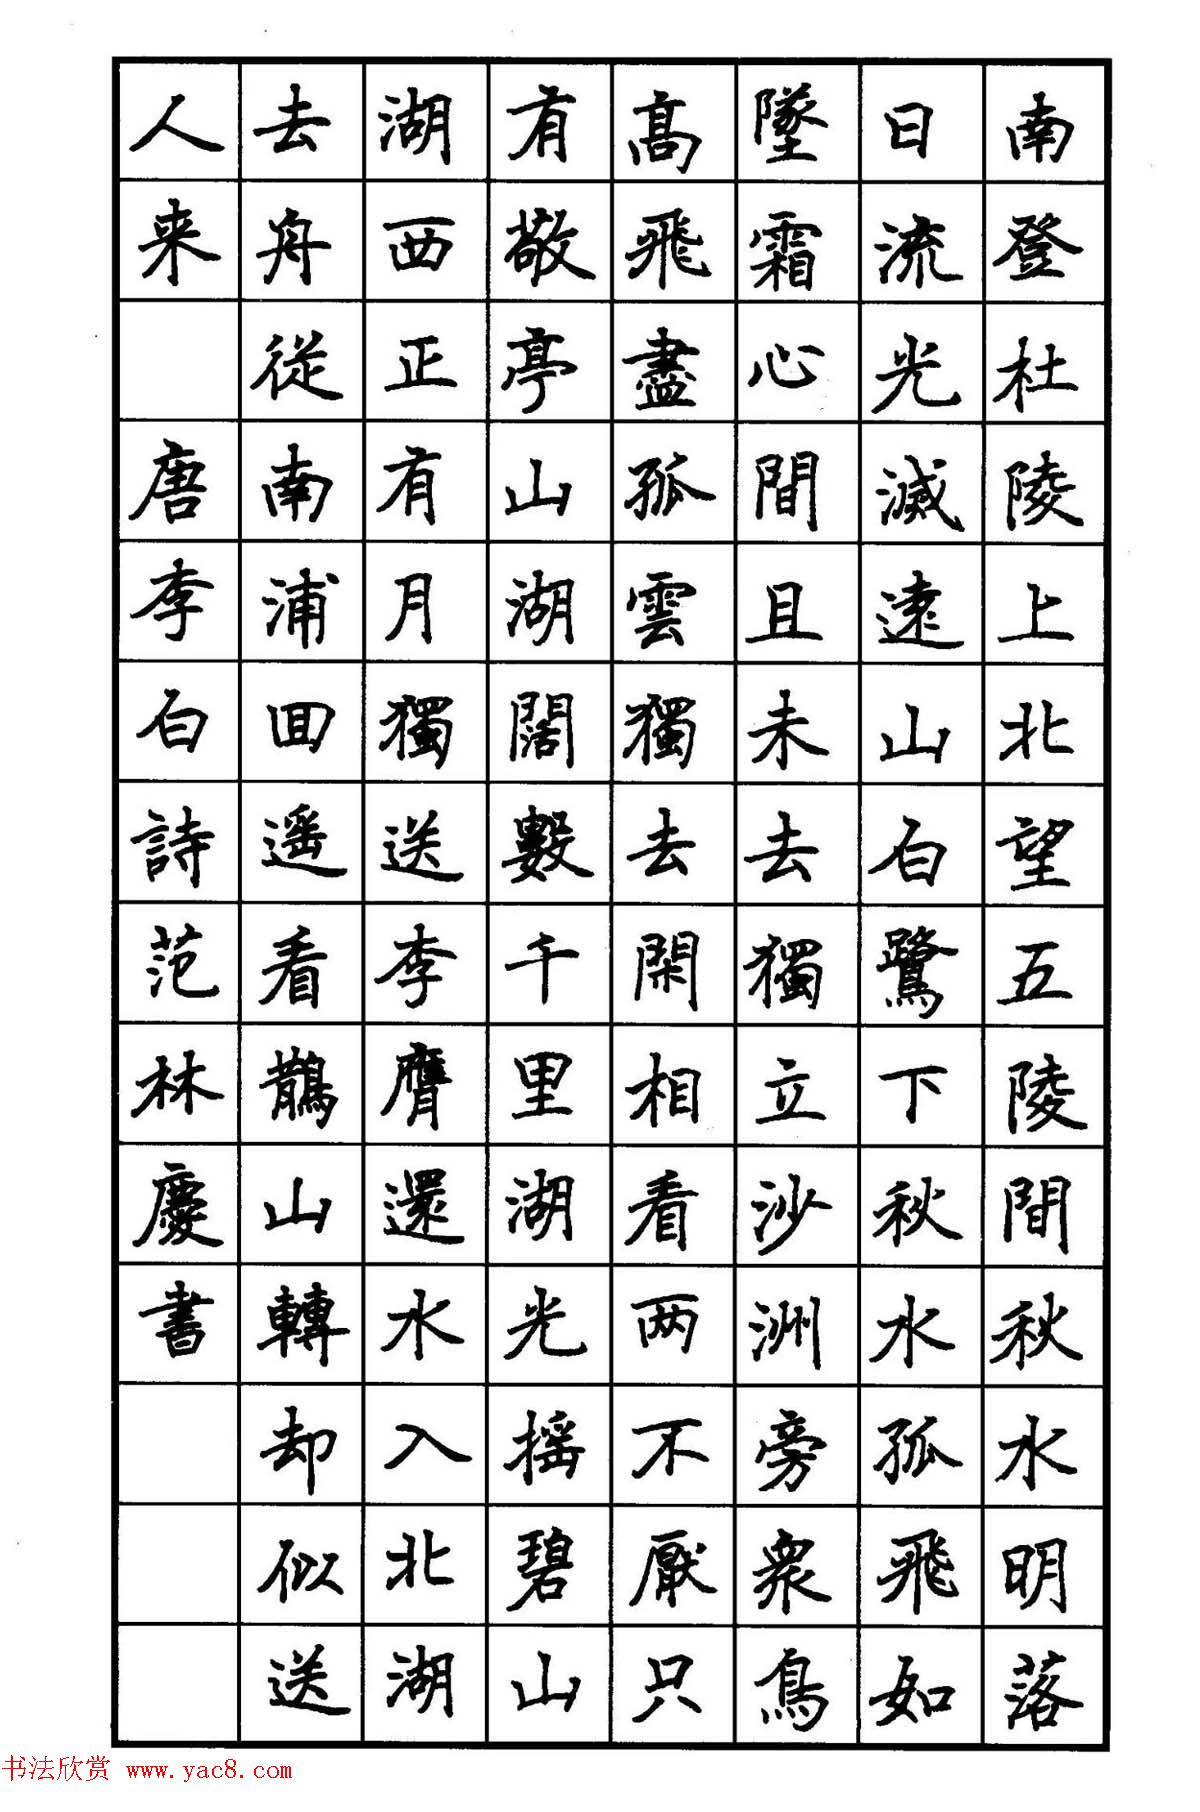 南登杜陵上北望五陵間秋水明落
日流光滅遠山白鷺下秋水孤飛如
墜霜心閒且未去獨立沙洲旁衆鳥
高飛盡孤雲獨去閑相看两不厭只
有敬亭山湖闊數千里湖光摇碧山
湖西正有月獨送李膺還水入北湖
去舟從南浦回遥看鵲山轉却似送
人来 唐李白詩范林慶書
书法欣赏 www.yac8.com